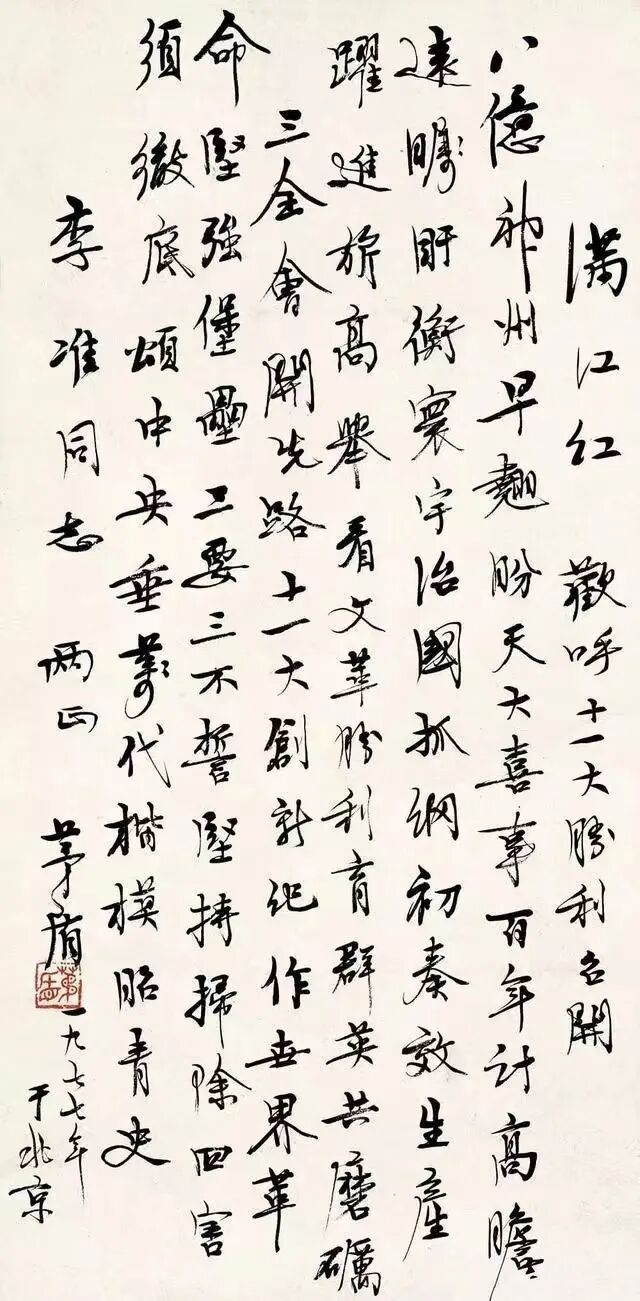 满江红 歡呼十一大勝利召開
八億神州早翹盼天大喜事百年計高瞻
遠矚盱衡寰宇治國抓綱初奏效生產
躍進旂高舉看文華勝利育群英共磨礪
三全會開先路十一大創新紀作世界革
命堅強堡壘三要三不誓堅持掃除四害
須徹底頌中央垂萬代楷模昭青史
李准同志 两正 茅盾
一九七七年
于北京